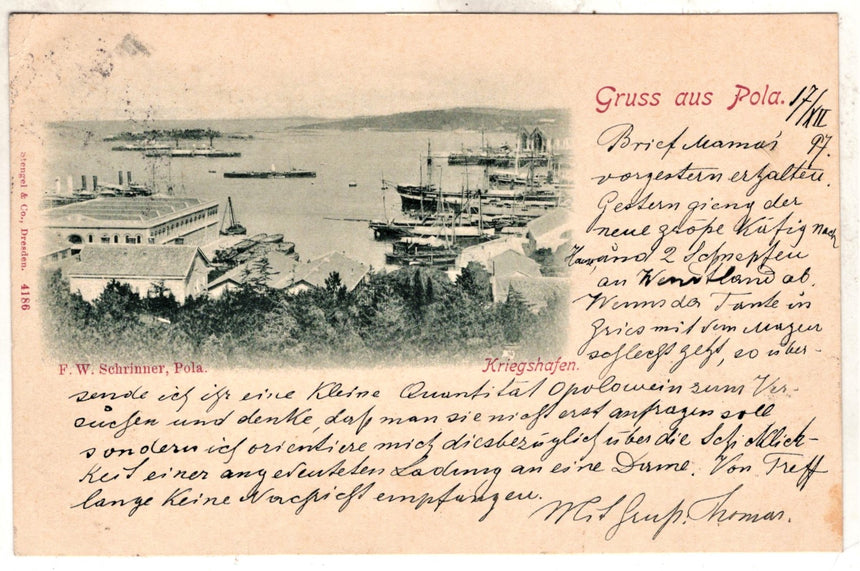 Gruss aus Pola.
17/XII 97.
Brief Mama's
vorgestern erhalten.
Gestern gieng der
neue große Käfig nach
Hause, und 2 Schnepfen
an Wendtland ab.
Wenns der Tante in
Gries mit dem Magen
schlecht geht, so über-
sende ich ihr eine kleine Quantität Opolowein zum Ver-
suchen und denke, daß man sie nicht erst anfragen soll
sondern ich orientiere mich diesbezüglich über die Schicklich-
keit einer angedeuteten Ladung an eine Dame. Von Treff
lange keine Nachricht empfangen.
Mit Gruß. Thomas.
Kriegshafen.
F. W. Schrinner, Pola.
Stengel & Co., Dresden. 4186